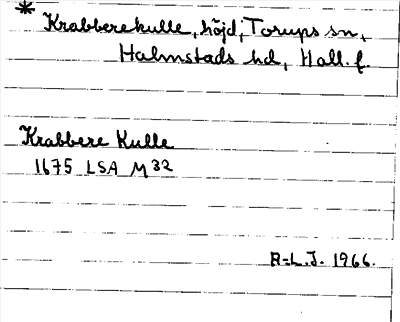 * Krabberekulle, höjd, Torups sn,
Halmstads hd, Hall. f.
Krabbere Kulle
1675 LSA M 32
R-L.J. 1966.